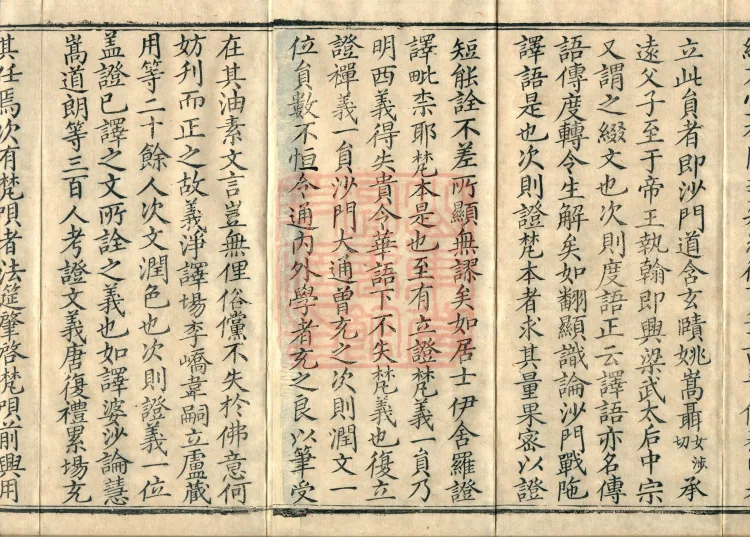 立此貟者即沙門道含玄賾姚嵩聶女涉切承
遠父子至于帝王執翰即興梁武太后中宗
又謂之綴文也次則度語正云譯語亦名傳
語傳度轉令生解矣如翻顯識論沙門戰陁
譯語是也次則證梵本者求其量果密以證
短能詮不差所顯無謬矣如居士伊舍羅證
譯毗柰耶梵本是也至有立證梵義一貟乃
明西義得失貴令華語下不失梵義也復立
證禪義一貟沙門大通曾充之次則潤文一
位貟數不恒令通內外學者充之良以筆受
在其油素文言豈無俚俗儻不失於佛意何
妨利而正之故義淨譯場李嶠韋嗣立盧藏
用等二十餘人次文潤色也次則證義一位
盖證已譯之文所詮之義也如譯婆沙論慧
嵩道朗等三百人考證文義唐復禮累場充
其任焉次有梵唄者法筵肇啓梵唄前興用